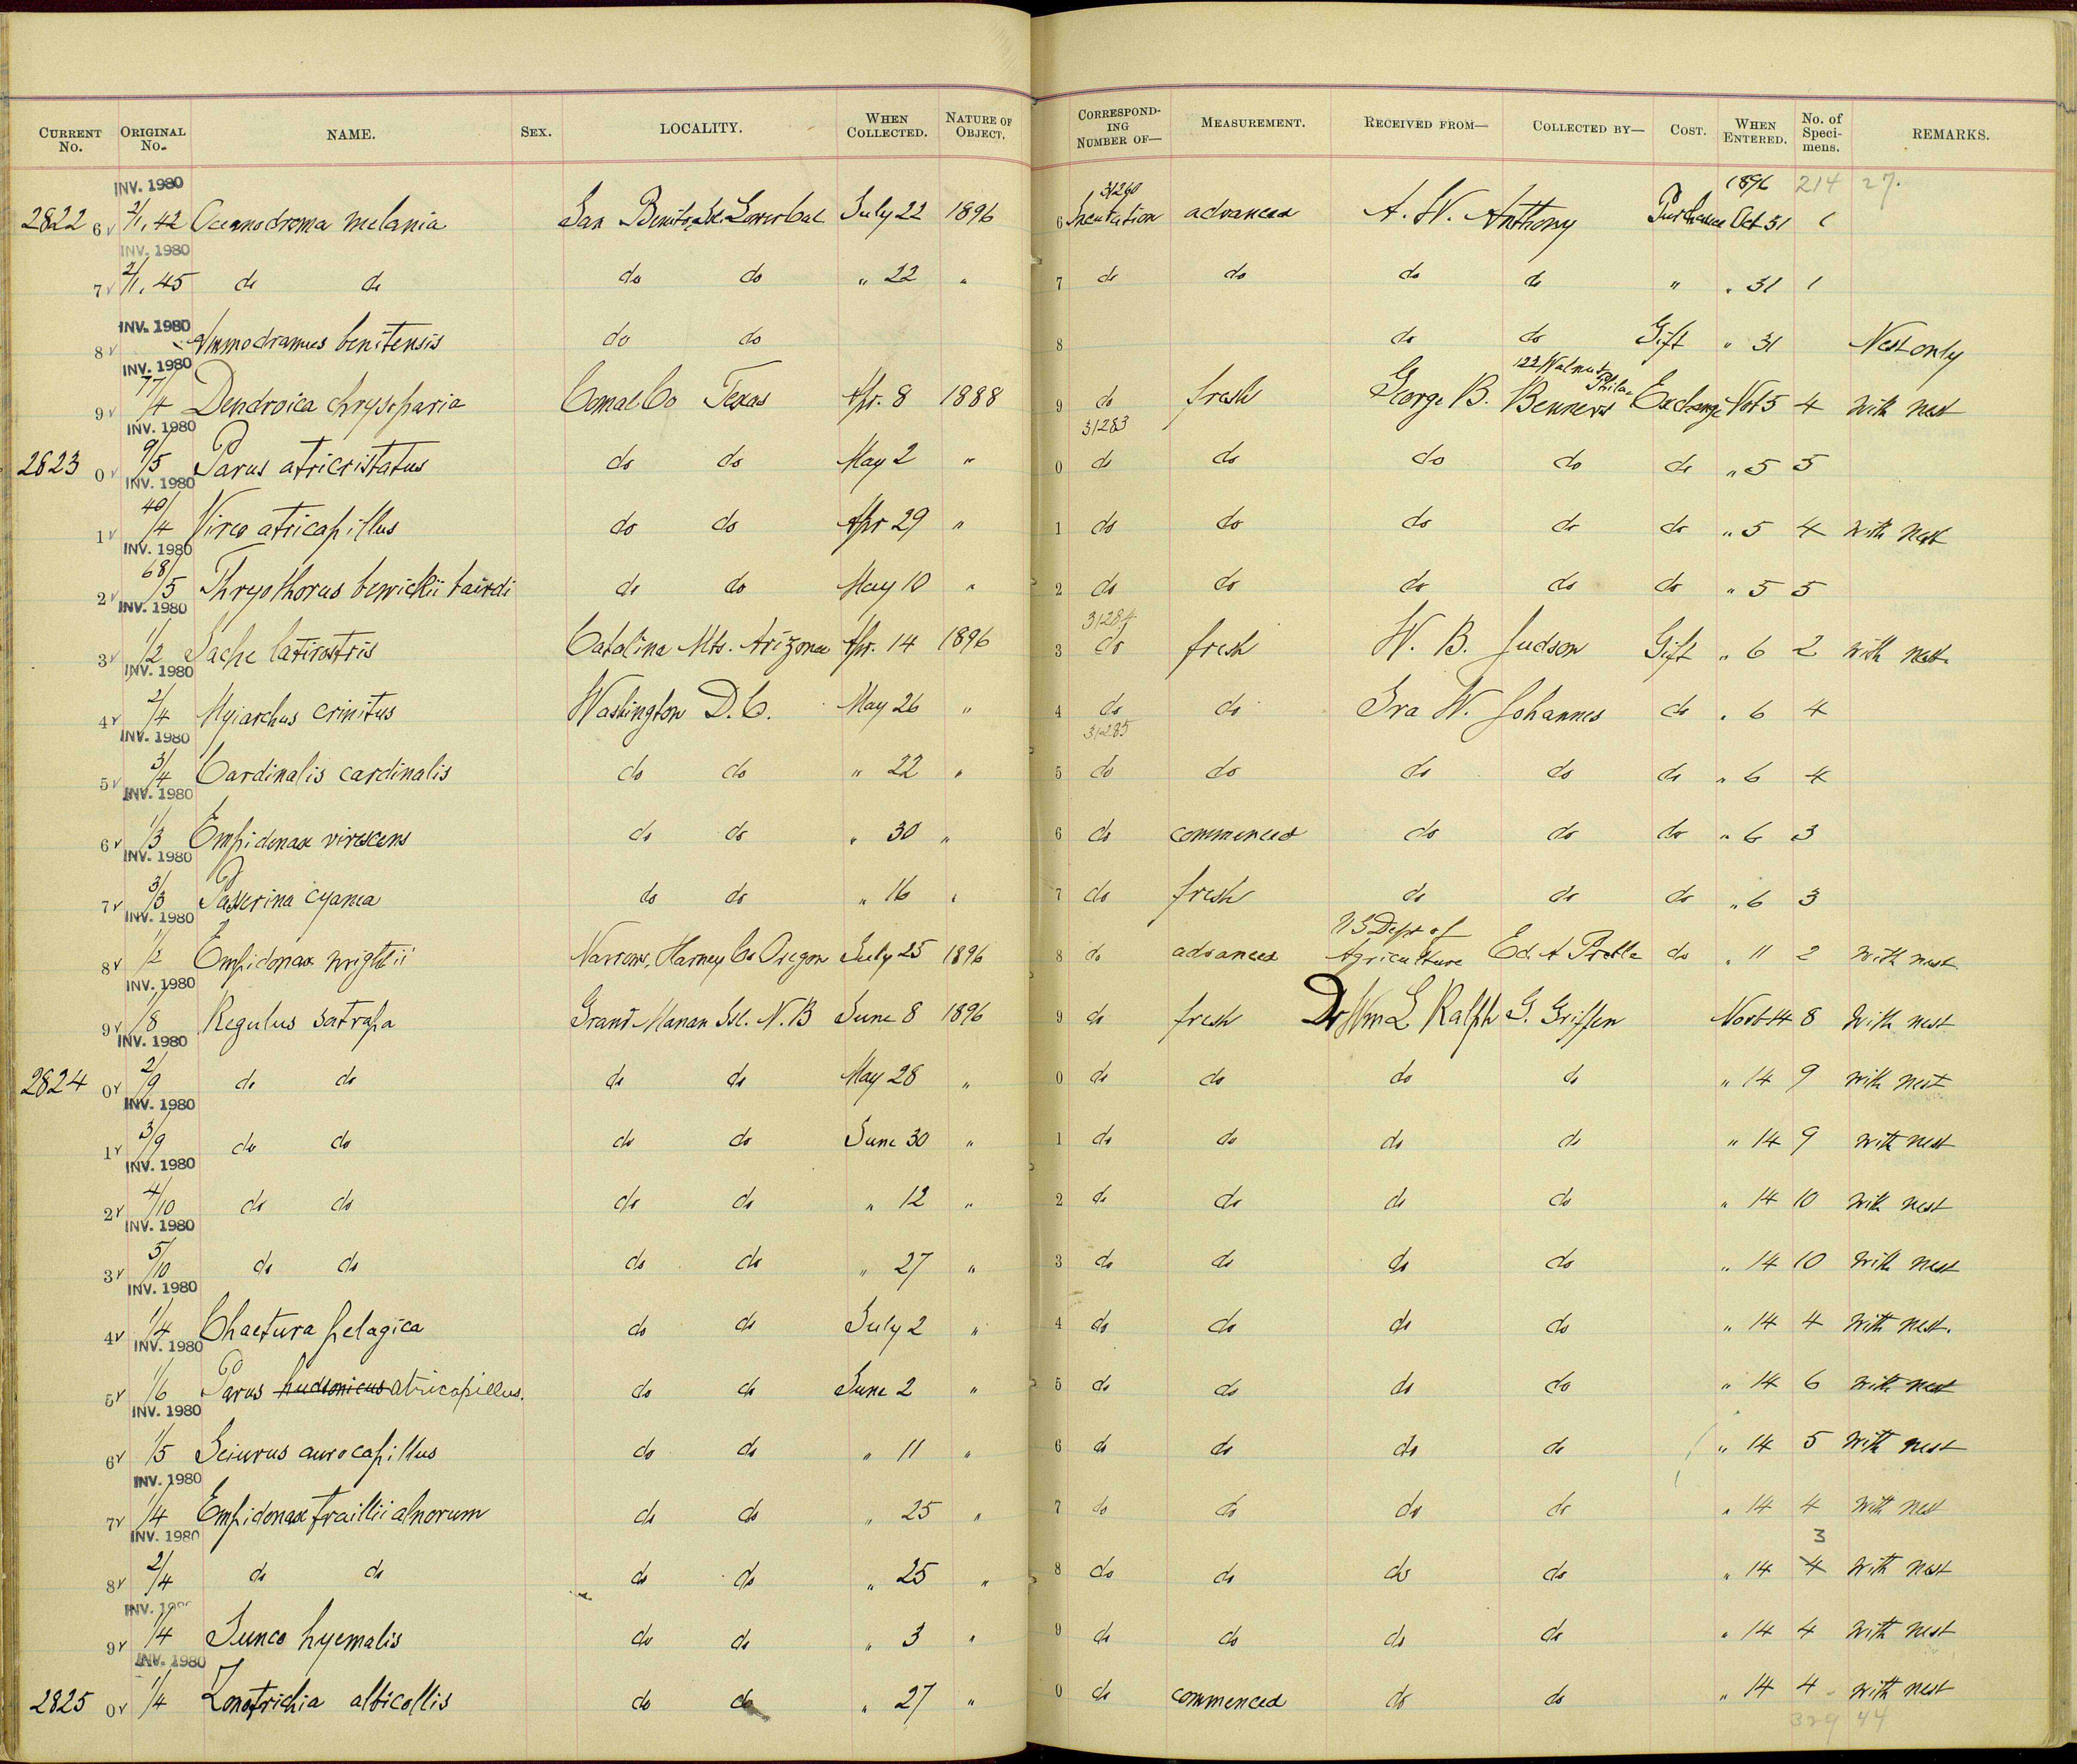 CURRENT No. ORIGINAL No. NAME. SEX. LOCALITY. WHEN COLLECTED. NATURE OF OBJECT. CORRESPONDING NUMBER OF— MEASUREMENT. RECEIVED FROM— COLLECTED BY— COST. WHEN ENTERED. No. of Specimens. REMARKS.
INV. 1980 31260 1896 214 27.
2822 6 2/1, 42 Oceanodroma melania San Benito Isl Lower Cal July 22 1896 6 Incubation advanced A. W. Anthony Purchase Oct 31 1
INV. 1980
7 2/1, 45 do do do do " 22 " 7 do do do do " " 31 1
INV. 1980
8 Ammodramus benitensis do do 8 do do Gift " 31 Nest only
INV. 1980 122 Walnut Phila
9 77/4 Dendroica chrysoparia Comal Co Texas Apr. 8 1888 9 do fresh George B. Benners Exchange Nov 5 4 With nest
INV. 1980 31283
2823 0 9/5 Parus atricristatus do do May 2 " 0 do do do do do " 5 5
INV. 1980
1 40/4 Vireo atricapillus do do Apr 29 " 1 do do do do do " 5 4 With nest
INV. 1980
2 68/5 Thryothorus bewickii bairdi do do May 10 " 2 do do do do do " 5 5
INV. 1980 31284
3 1/2 Iache latirostris Catalina Mts. Arizona Apr. 14 1896 3 do fresh W. B. Judson Gift " 6 2 with nest.
INV. 1980
4 2/4 Myiarchus crinitus Washington D.C. May 26 " 4 do do Ira W. Johannes do " 6 4
INV. 1980 31285
5 3/4 Cardinalis cardinalis do do " 22 " 5 do do do do do " 6 4
INV. 1980
6 1/3 Empidonax virescens do do " 30 " 6 do commenced do do do " 6 3
INV. 1980
7 3/3 Passerina cyanea do do " 16 " 7 do fresh do do do " 6 3
INV. 1980 U S Dept of
8 1/2 Empidonax wrightii Narrows, Harney Co Oregon July 25 1896 8 do advanced Agriculture Ed. A Preble do " 11 2 With nest
INV. 1980
9 1/8 Regulus satrapa Grand Manan Isl. N.B June 8 1896 9 do fresh Dr Wm L Ralph G. Griffen Nov 14 8 With nest
INV. 1980
2824 0 2/9 do do do do May 28 " 0 do do do do " 14 9 with nest
INV. 1980
1 3/9 do do do do June 30 " 1 do do do do " 14 9 with nest
INV. 1980
2 4/10 do do do do " 12 " 2 do do do do " 14 10 With nest
INV. 1980
3 5/10 do do do do " 27 " 3 do do do do " 14 10 With nest
INV. 1980
4 1/4 Chaetura pelagica do do July 2 " 4 do do do do " 14 4 With nest.
INV. 1980
5 1/6 Parus hudsonicus atricapillus. do do June 2 " 5 do do do do " 14 6 with nest
INV. 1980
6 1/5 Seiurus aurocapillus do do " 11 " 6 do do do do " 14 5 With nest
INV. 1980
7 1/4 Empidonax traillii alnorum do do " 25 " 7 do do do do " 14 4 With nest
INV. 1980 3
8 2/4 do do do do " 25 " 8 do do do do " 14 4 With nest
INV. 1980
9 1/4 Junco hyemalis do do " 3 " 9 do do do do " 14 4 With nest
INV. 1980
2825 0 1/4 Zonotrichia albicollis do do " 27 " 0 do commenced do do " 14 4 With nest
329 44